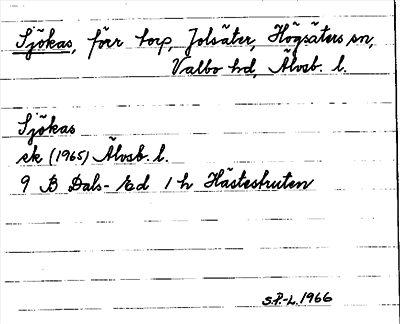 Sjökas, förr torp, Jolsäter, Högsäters sn,
Valbo hd, Älvsb. l.
Sjökas
ek (1965) Älvsb. l.
9 B Dals-Ed 1 h Hästeskruten
S.P.-L. 1966